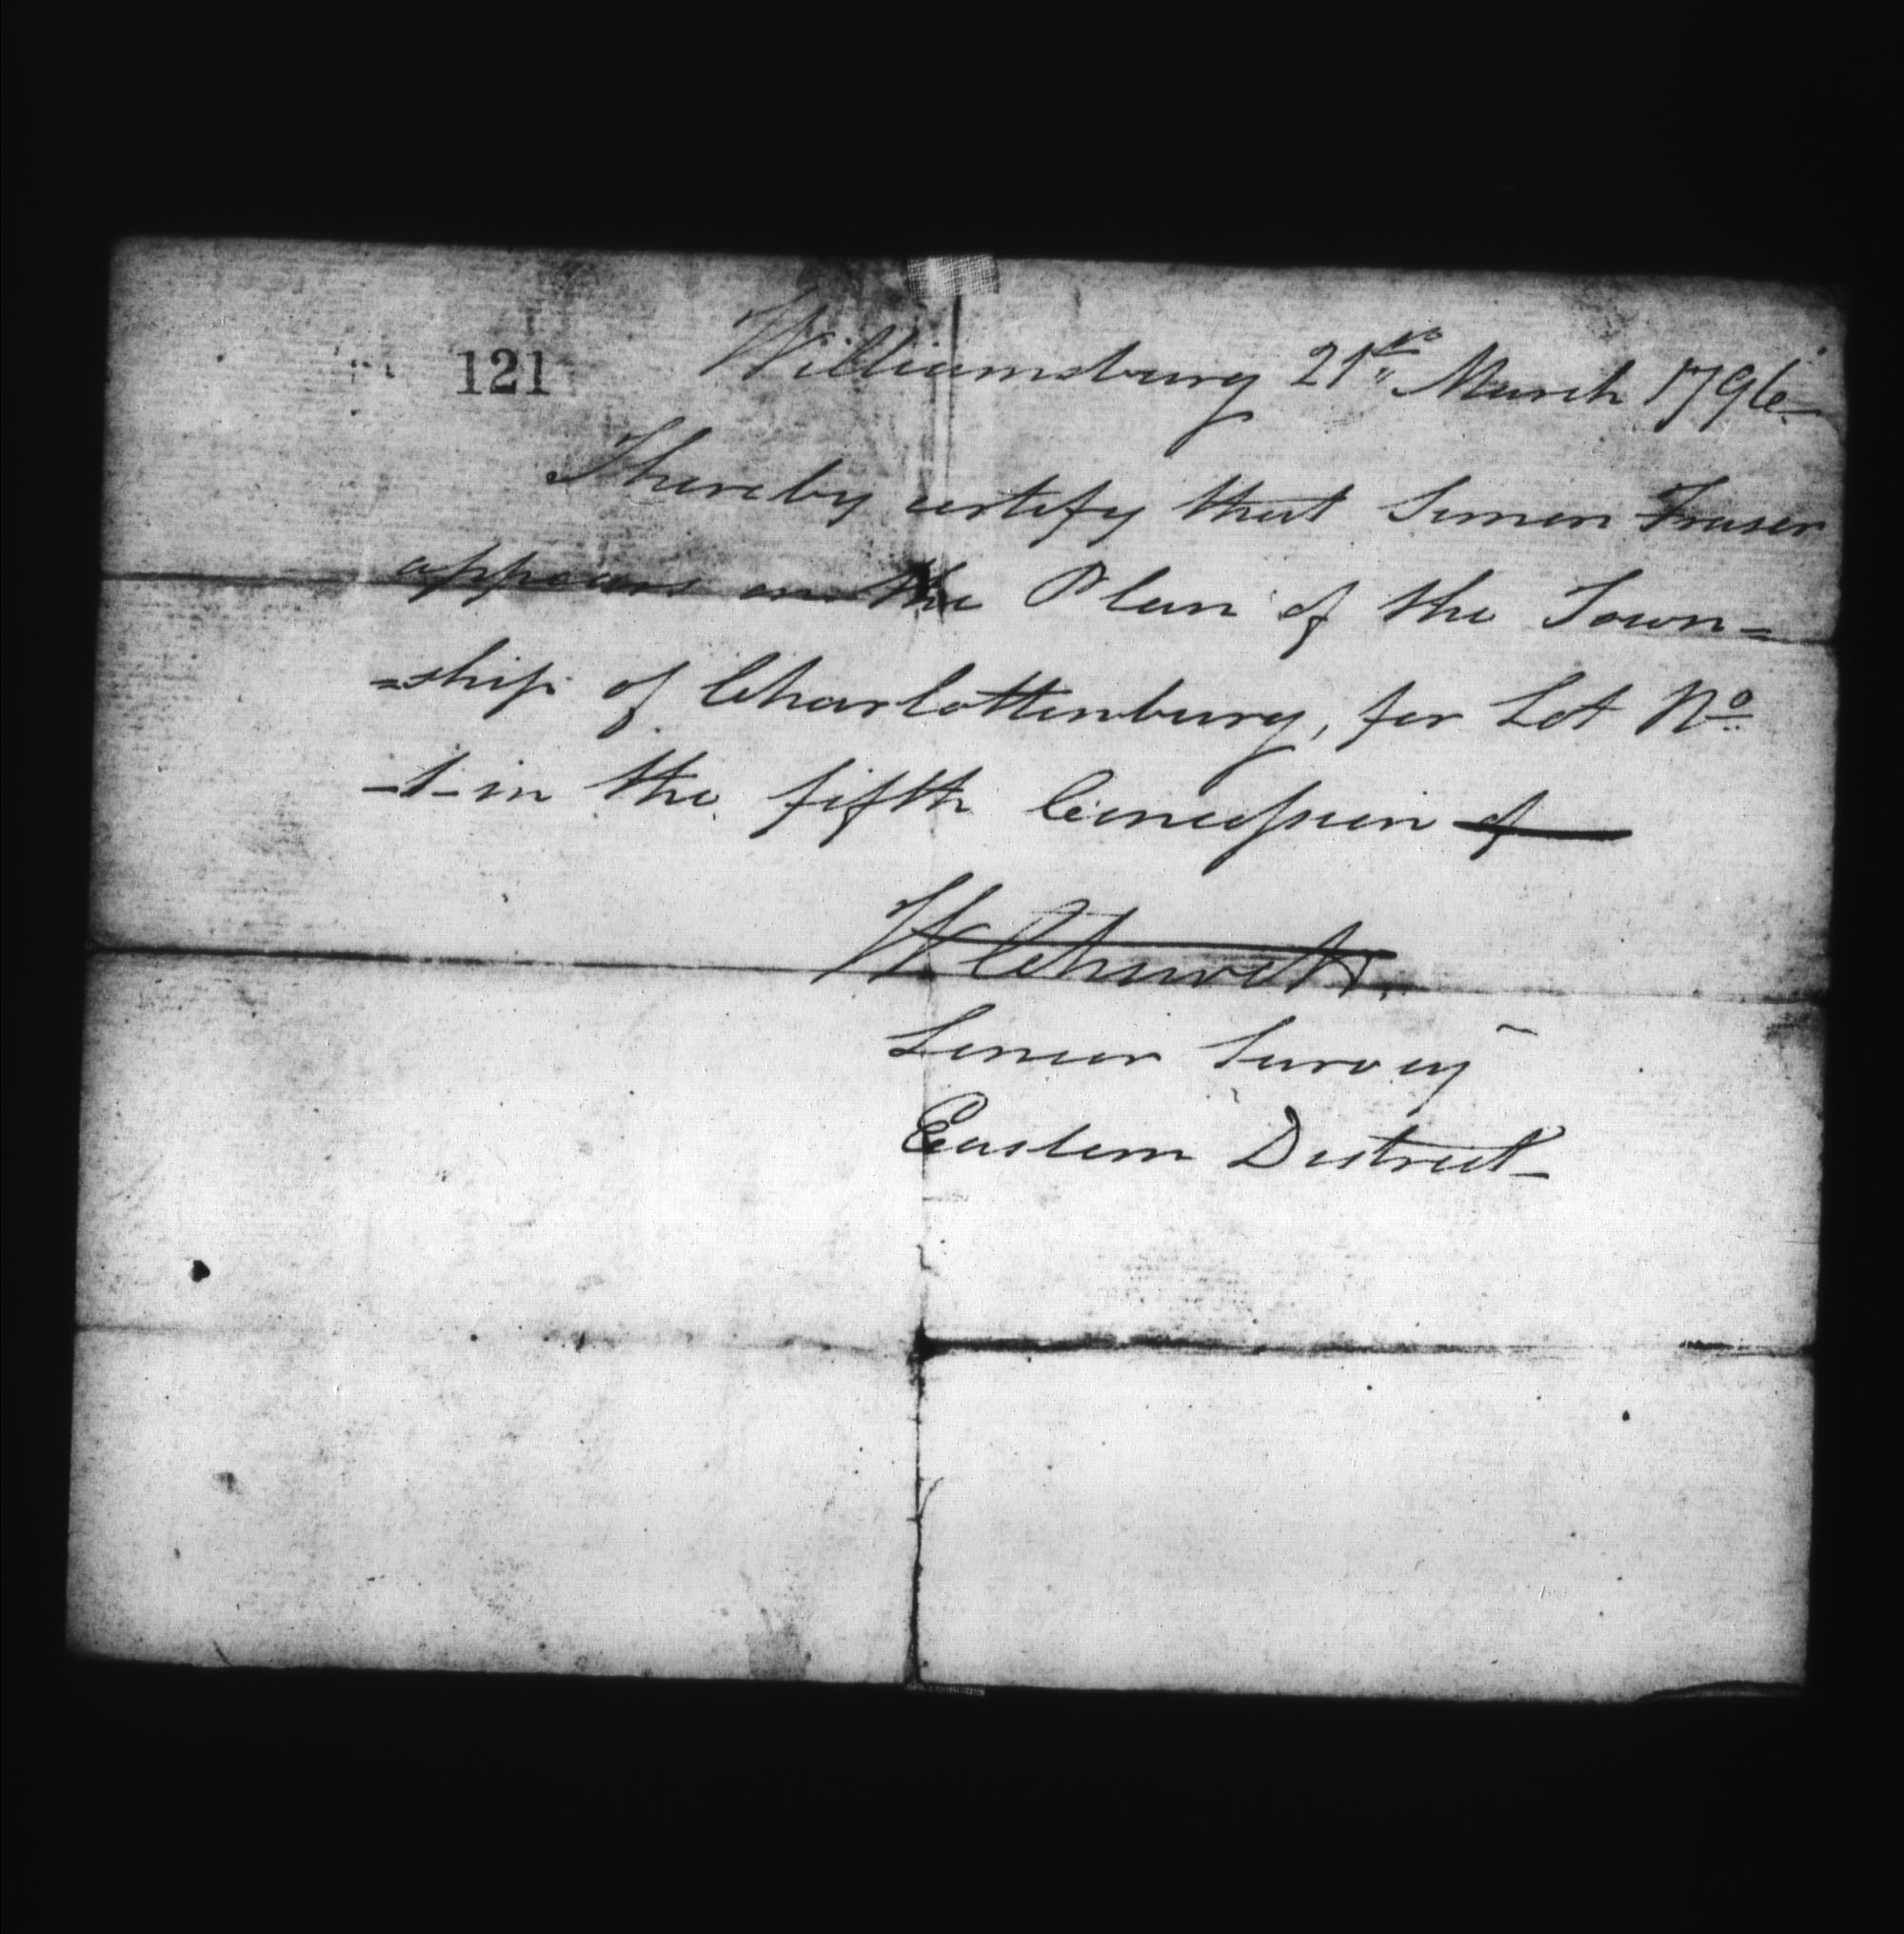 121
Williamsburg 21st March 1796
I hereby certify that Simon Fraser
appears on the Plan of the Town=
=ship of Charlottenburg, for Lot No
-1- in the fifth Concession of
W Chewett.
Senior Survey
Eastern District